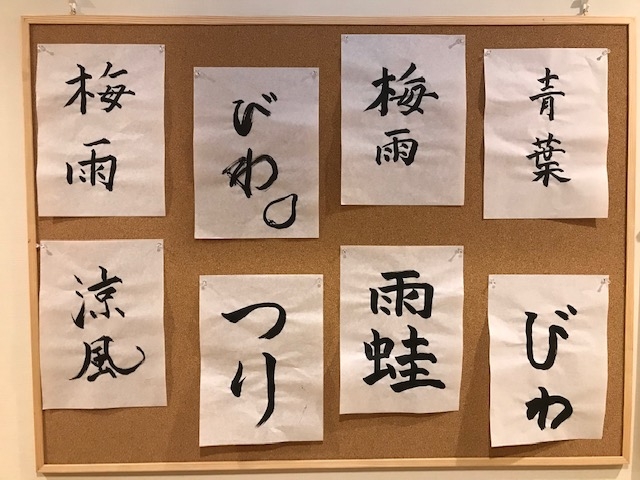 梅雨
びわ。
梅雨
青葉
涼風
つり
雨蛙
びわ